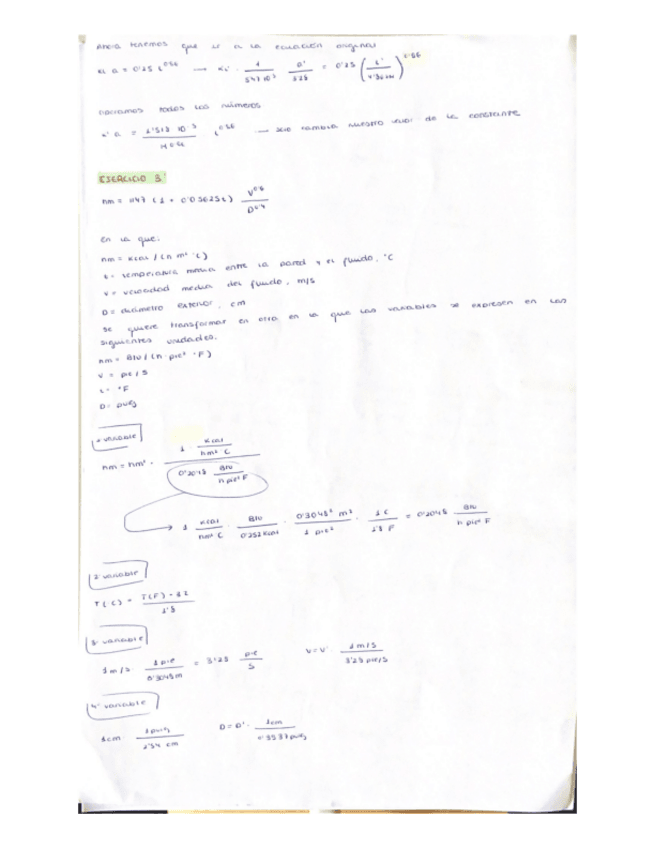 Ahora tenemos que ir a la ecuación original
a = 0'25 t^0'56 → · 1/547·10³ · a'/3'28 = 0'25 (t'/)^0'56
todos los números
a = 1'513·10^-3/ t^0'56 → solo cambia nuestro valor de la constante
EJERCICIO 3'
hm = 1147 (1 + 0'05025t) V^0'6/D^0'4
en la que:
hm = Kcal / (h m² °C)
t = temperatura media entre la pared y el fluido, °C
v = velocidad media del fluido, m/s
D = diámetro exterior, cm
se quiere transformar en otra en la que las variables se expresen en las
siguientes unidades.
hm = Btu / (h · pie² · °F)
v = pie/s
t = °F
D = pulg
1ª variable
hm = hm' · 1 · Kcal/hm² °C / 0'2048 Btu/h pie² F
→ 1 Kcal/hm² C · Btu/0'252 Kcal · 0'3048² m²/1 pie² · 1 C/1'8 F = 0'2048 Btu/h pie² F
2ª variable
T(C) = T(F) - 32/1'8
3ª variable
1 m/s · 1 pie/0'3048 m = 3'28 pie/s V = V' · 1 m/s/3'28 pie/s
4ª variable
1 cm · 1 pulg/2'54 cm D = D' · 1 cm/0'3937 pulg